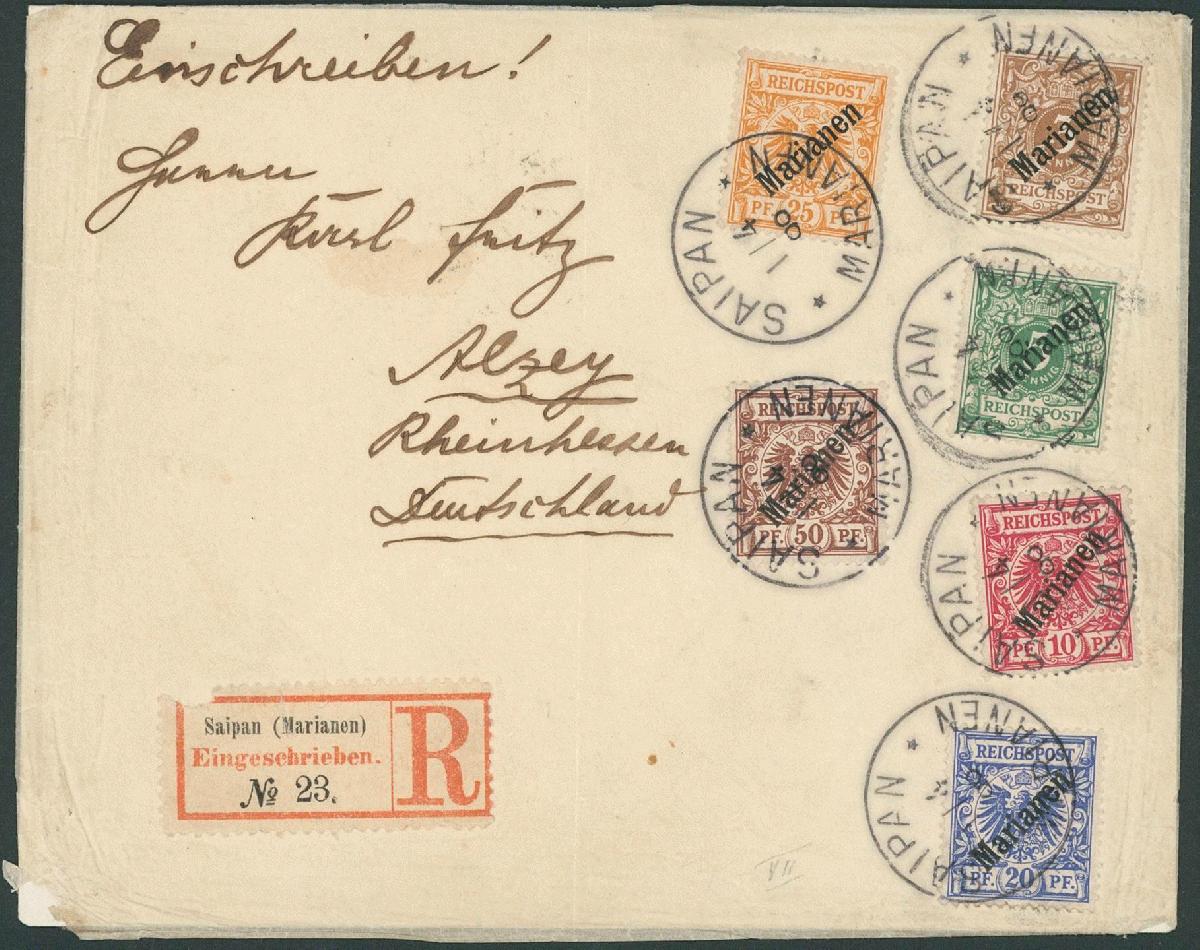 Einschreiben!
Herrn
Karl Fritz
Alzey
Rheinhessen
Deutschland
REICHSPOST
Marianen
PF. 25 PF.
SAIPAN * MARIANEN *
1/4
00
Marianen
REICHSPOST
SAIPAN * MARIANEN *
Marianen
REICHSPOST
SAIPAN * MARIANEN *
REICHSPOST
Marianen
PF. 50 PF.
SAIPAN * MARIANEN *
REICHSPOST
Marianen
PF. 10 PF.
SAIPAN * MARIANEN *
REICHSPOST
Marianen
PF. 20 PF.
SAIPAN * MARIANEN *
Saipan (Marianen)
Eingeschrieben.
№ 23.
R
VII